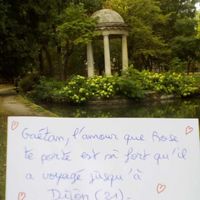 Gaëtan, l'amour que Rose
te porte est si fort qu'il
a voyagé jusqu'à
Dijon (21).